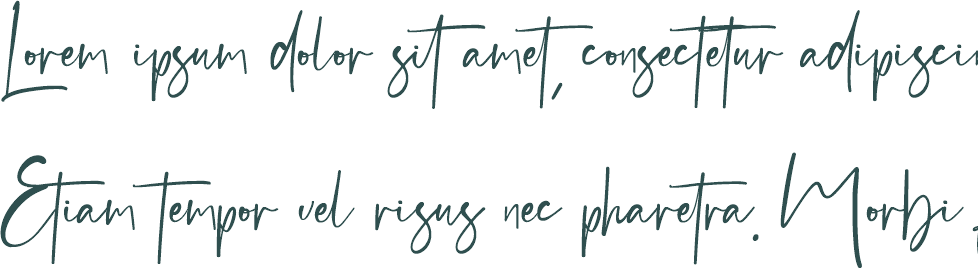 Lorem ipsum dolor sit amet, consectetur adipiscin
Etiam tempor vel risus nec pharetra. Morbi